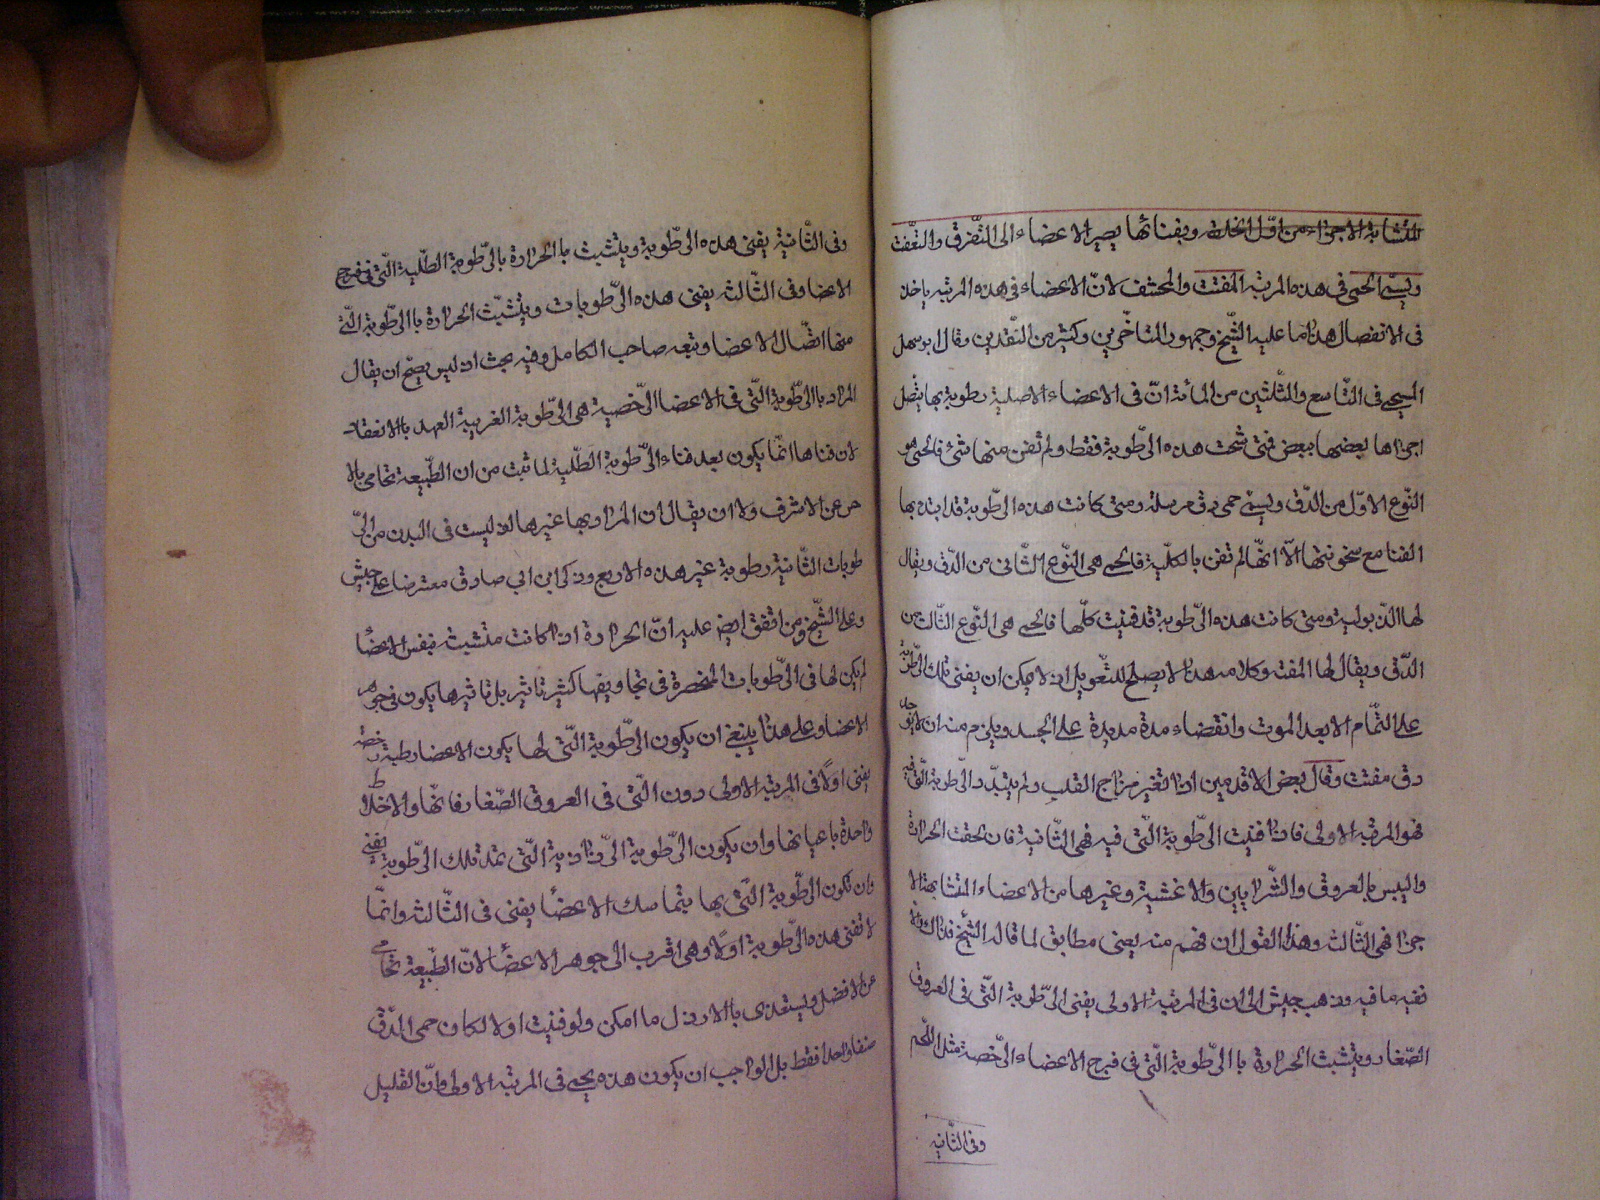 المتشابهة الاجزاء من اوّل الخلقة وبفنائها يصير الاعضاء الى التّفرق والتّفتت
ويسمّى الحمى فى هذه المرتبة المفتت والمحشف لانّ الاعضاء فى هذه المرتبه ياخذ
فى الانفصال هذا ما عليه الشّيخ وجمهور المتاخّرين وكثير من المتقدمين وقال ابو سهل
المسيحى فى التّاسع والثّلثين من المائة انّ فى الاعضاء الاصلية رطوبة بها يتّصل
اجزاها بعضها ببعض فمتى سخنت هذه الرّطوبة فقط ولم تفن منها شئ فالحمى هو
النّوع الاوّل من الدّق ويسمى حمى دق مرسلة ومتى كانت هذه الرّطوبة قد ابتدء بها
الفنا مع سخونتها الّا انّها لم تفن بالكلّية فالحمى هى النّوع الثّانى من الدّق ويقال
لها الذّبولية ومتى كانت هذه الرّطوبة قد فنيت كلّها فالحمى هى النّوع الثّالث من
الدّق ويقال لها المفتة وكلامه هذا لا يصلح للتّعويل اذ لا يمكن ان يفنى تلك الرّطوبة
على التّمام الا بعد الموت وانقضاء مدة مديدة على الجسد ويلزم منه ان لا يوجد
دق مفتت وقال بعض الاقدمين اذا تغير مزاج القلب ولم يتبدّد الرّطوبة الّتى فيه
فهو المرتبة الاولى فاذا فنيت الرّطوبة الّتى فيه فهى الثّانية فان لحقت الحرارة
واليبس بالعروق والشّرايين والاغشية وغيرها من الاعضاء المتشابهة الا
جزا فهى الثّالثه وهذا القول ان فهم منه يعنى مطابق لما قاله الشّيخ فذاك والّا
ففيه ما فيه وذهب جبيش الى ان فى المرتبة الاولى يفنى الرّطوبة الّتى فى العروق
الصّغار ويتشبث الحرارة بالرّطوبة الّتى فى فرج الاعضاء الرّخصة مثل اللّحم
وفى الثّانيه
وفى الثّانية يفنى هذه الرّطوبة ويتشبث بالحرارة بالرّطوبة الطّلية الّتى فى فرج
الاعضا وفى الثّالثه يفنى هذه الرّطوبات ويتشبّث الحرارة بالرّطوبة الّتى
منها اتّصال الاعضا وتبعه صاحب الكامل وفيه بحث اذ ليس يصحّ ان يقال
المراد بالرّطوبة الّتى فى الاعضا الرّخصة هى الرّطوبة الغريبة العهد بالانعقاد
لان فناها انّما يكون بعد فناء الرّطوبة الطّلية لما ثبت من ان الطّبيعة تحامى بالا
خس عن الاشرف ولا ان يقال ان المراد بها غيرها اذ ليست فى البدن من الرّ
طوبات الثّانية رطوبة غير هذه الاربع وذكر ابن ابى صادق معترضا على جبيش
وعلى الشّيخ ومن اتّفق ايض عليه انّ الحرارة اذا كانت متشبثة بنفس الاعضا
لم يكن لها فى الرّطوبات المنحصرة فى تجاويفها كثير تاثير بل تاثيرها يكون فى جوهر
الاعضا وعلى هذا ينبغى ان يكون الرّطوبة الّتى لها يكون الاعضا رطبة رخصة
يفنى اوّلا فى المرتبة الاولى دون الّتى فى العروق الصّغار فانّها والاخلاط
واحدة باعيانها وان يكون الرّطوبة الرّذاذية الّتى تمد تلك الرّطوبة يفنى
وان تكون الرّطوبة الّتى بها يتماسك الاعضا يفنى فى الثّالثه وانّما
لا تفنى هذه الرّطوبة اوّلا وهى اقرب الى جوهر الاعضا لانّ الطّبيعة تحامى
عن الافضل ويستعدى بالارذل ما امكن ولو فنيت اولا لكان حمى الدّق
صنفا واحدا فقط بل الواجب ان يكون هذه يحمى فى المرتبة الاولى وانّ القليل